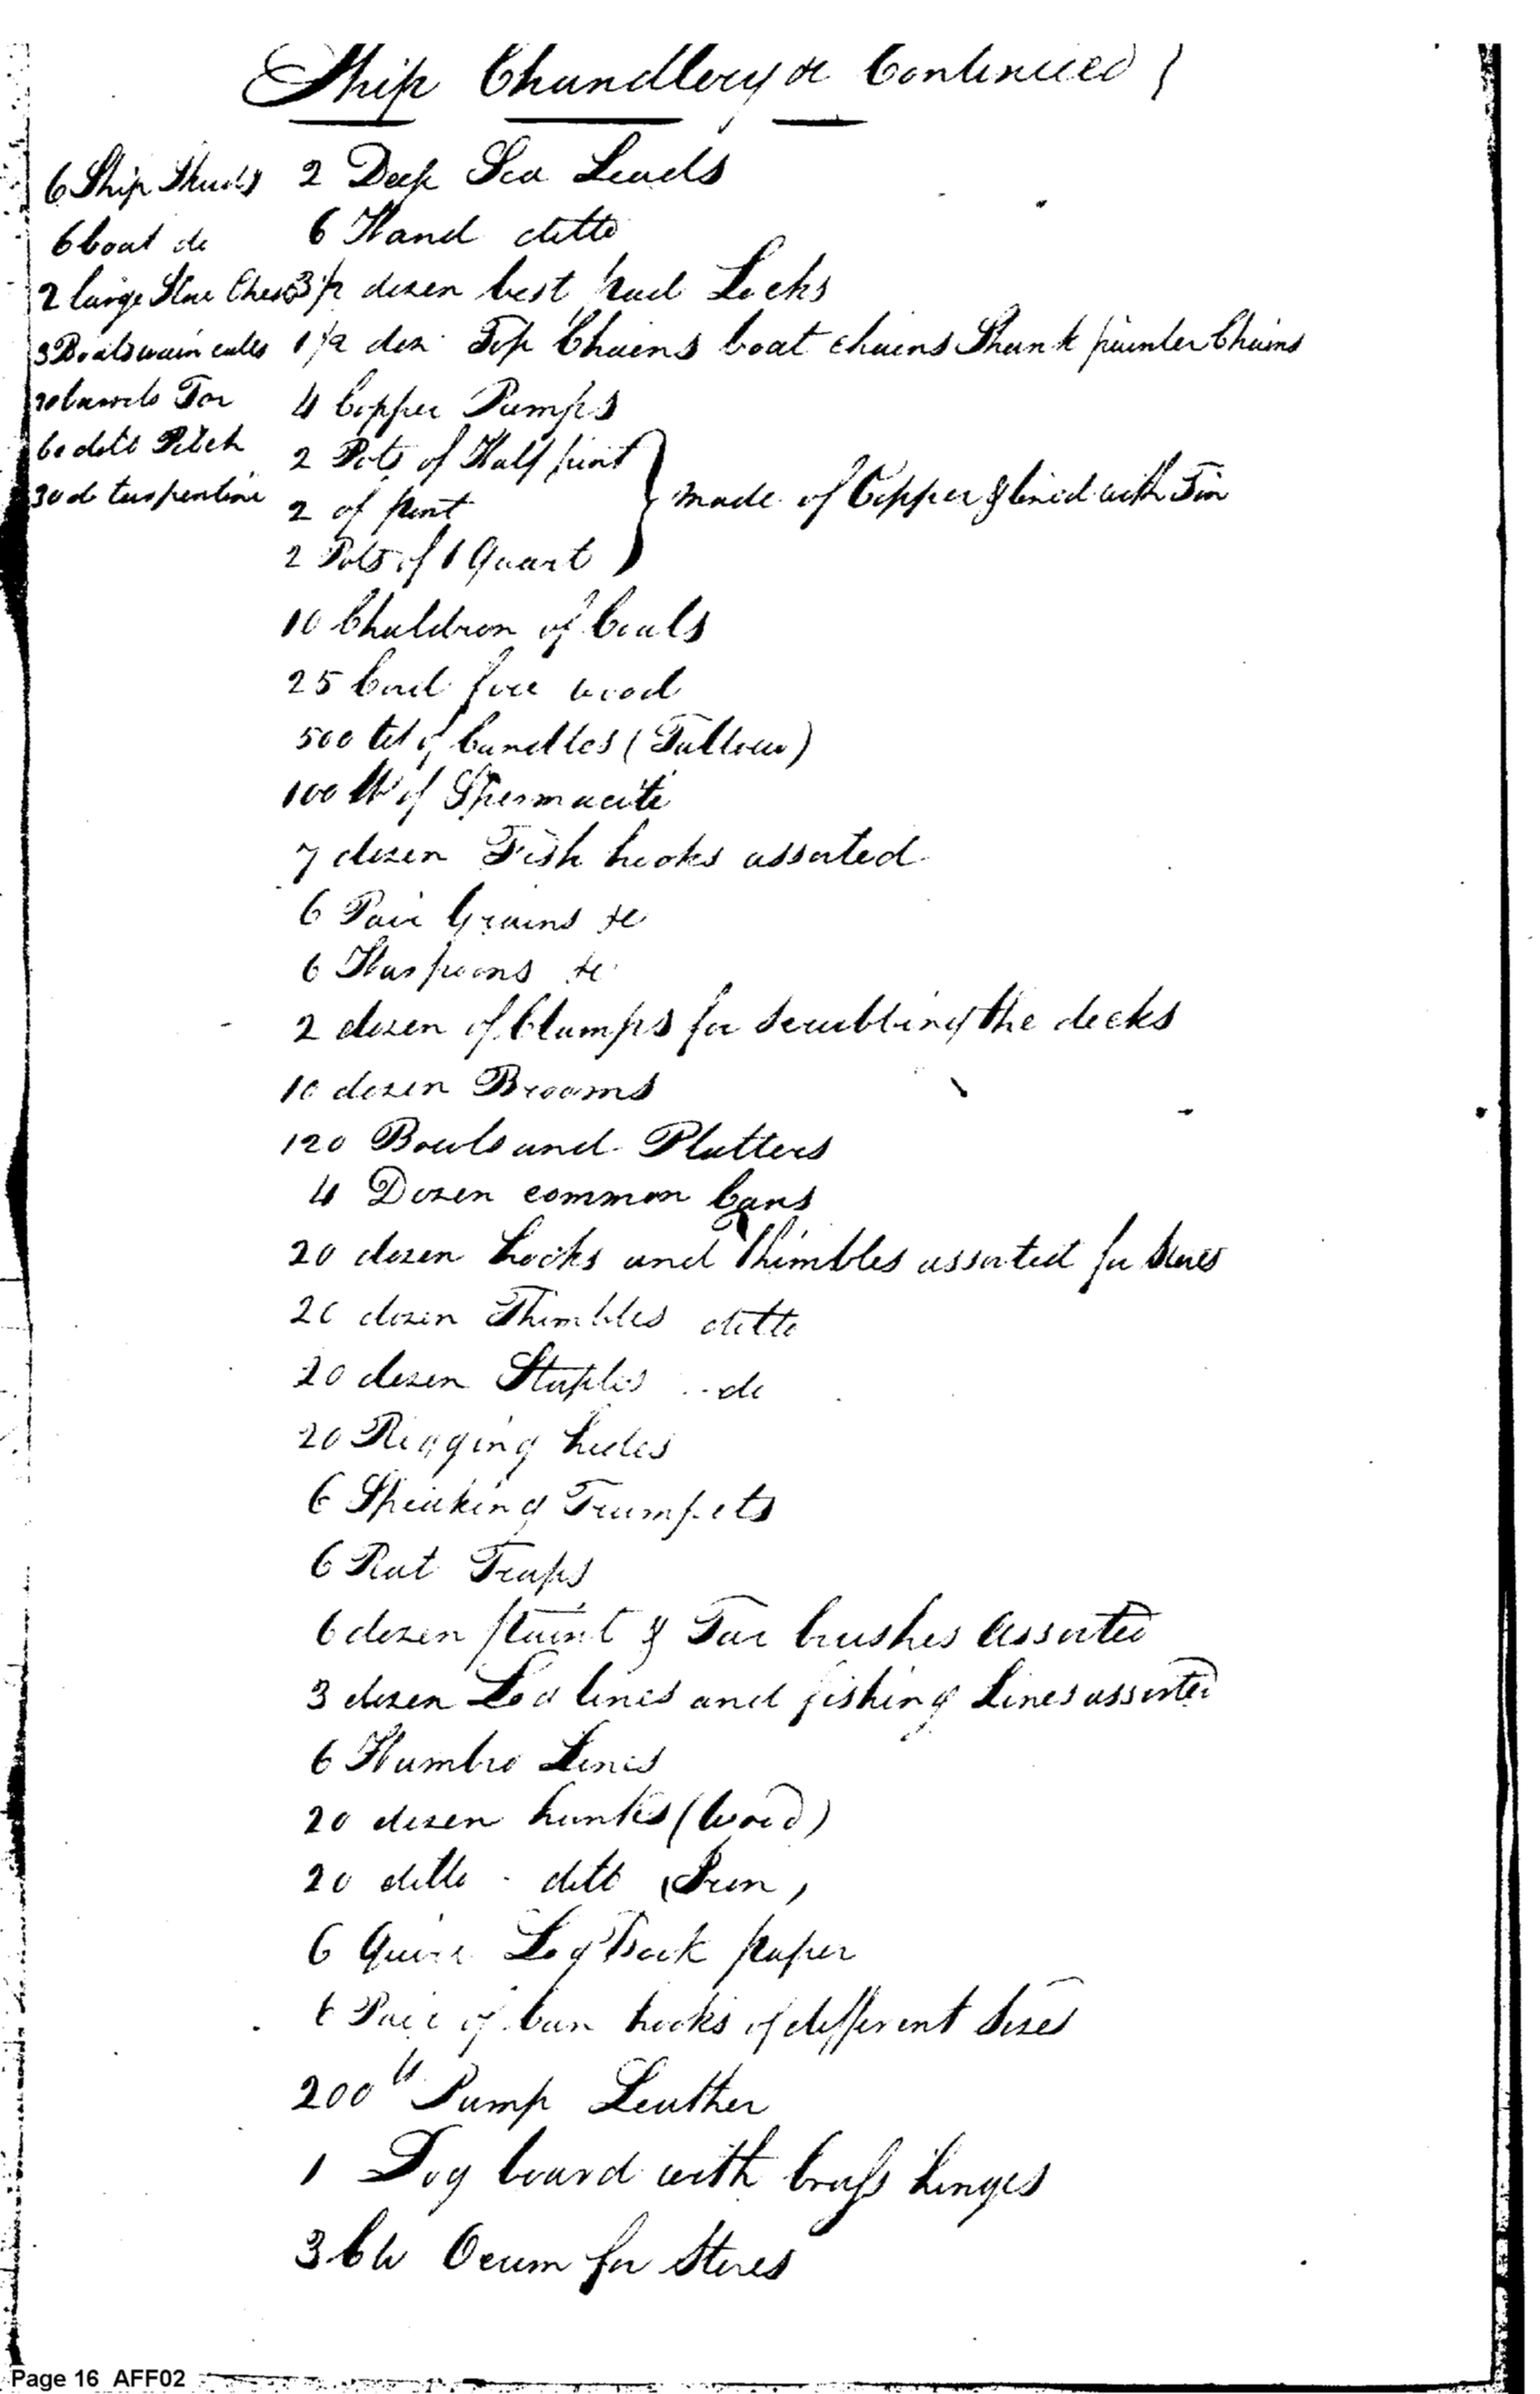 Ship Chandlery &c Continued
6 Ship
6 boat do
2 large Stone Chests
3 Boatswain calls
20 barrels Tar
60 ditto Pitch
30 do turpentine
2 Deep Sea Leads
6 Hand ditto
3 1/2 dozen best pad Locks
1 1/2 doz Top Chains boat chains Shank painter Chains
4 Copper Pumps
2 Pots of Half pint
2 of pint
2 Pots of 1 Quart
made of Copper & lined with Tin
10 Chaldron of Coals
25 Cord fire wood
500 lbs of Candles (Tallow)
100 lb of Spermacite
7 dozen Fish hooks assorted
6 Pair Grains &c
6 Harpoons &c
2 dozen of Clamps for Scrubbing the decks
10 dozen Brooms
120 Bowls and Platters
4 Dozen common Cans
20 dozen hooks and Thimbles assorted for Stores
20 dozen Thimbles ditto
20 dozen Staples do
20 Rigging hides
6 Speaking Trumpets
6 Rat Traps
6 dozen paint & Tar brushes assorted
3 dozen Log lines and fishing Lines assorted
6 Hambro Lines
20 dozen hanks (wood)
20 ditto ditto (Iron)
6 Quire Log Book paper
6 Pair of Can hooks of different Sizes
200 lb Pump Leather
1 Log board with brass hinges
3 Cw Ocum for Stores
Page 16 AFF02